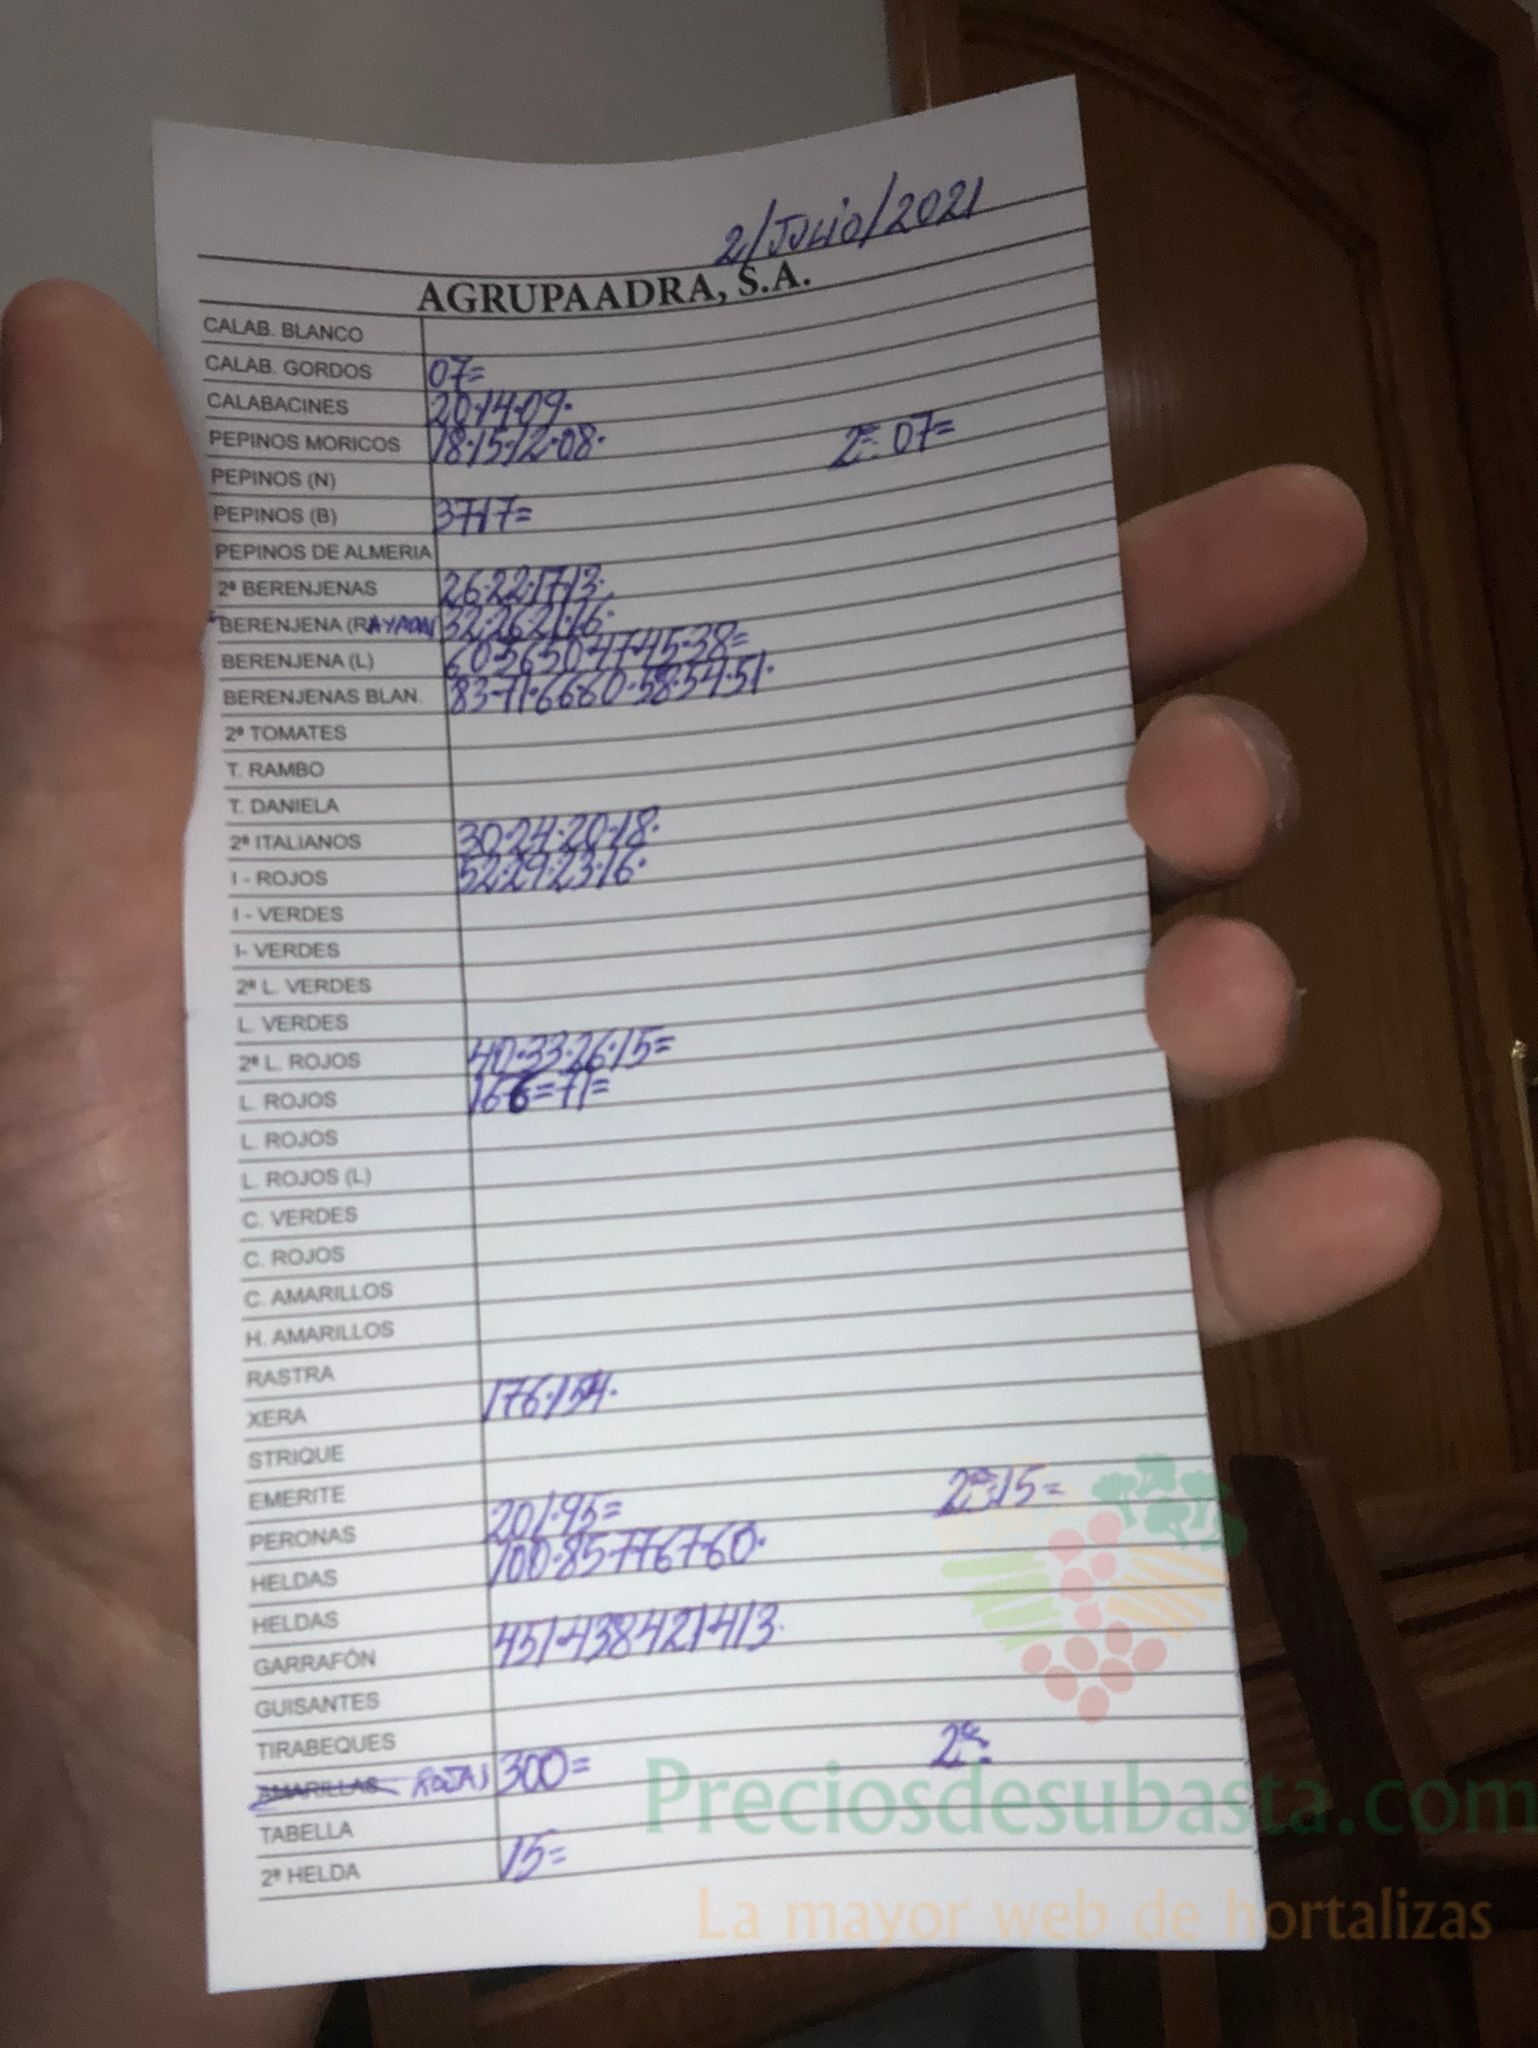 2/JULIO/2021
AGRUPAADRA, S.A.
CALAB. BLANCO
CALAB. GORDOS 07=
CALABACINES 20·14·09·
PEPINOS MORICOS 18·15·12·08· 2ª: 07=
PEPINOS (N)
PEPINOS (B) 37·17=
PEPINOS DE ALMERIA
2ª BERENJENAS 26·22·17·13·
BERENJENA (RAYADA 32·26·21·16·
BERENJENA (L) 60·56·50·47·45·38=
BERENJENAS BLAN. 83·71·66·60·58·54·51·
2ª TOMATES
T. RAMBO
T. DANIELA
2ª ITALIANOS 30·24·20·18·
I - ROJOS 52·29·23·16·
I - VERDES
I- VERDES
2ª L. VERDES
L. VERDES
2ª L. ROJOS 40·33·26·15=
L. ROJOS 166=71=
L. ROJOS
L. ROJOS (L)
C. VERDES
C. ROJOS
C. AMARILLOS
H. AMARILLOS
RASTRA
XERA 176·154·
STRIQUE
EMERITE
PERONAS 201·95= 2ª:15=
HELDAS 100·85·77·67·60·
HELDAS
GARRAFÓN 451·438·421·413·
GUISANTES
TIRABEQUES
AMARILLAS ROJAS 300= 2ª:
TABELLA
2ª HELDA 15=
Preciosdesubasta.com
La mayor web de hortalizas